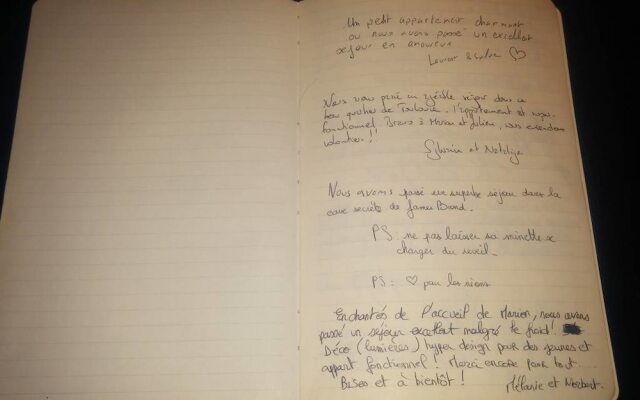 Un petit appartement charmant
ou nous avons passé un excellent
sejour en amoureux
Laurent &
Nous avons passé un agréable séjour dans ce
beau quartier de Toulouse. L'appartement est
fonctionnel. Bravo à Marion et Julien, nous reviendrons
volontiers!!
Sylvain et
Nous avons passé un superbe séjour dans la
cave secrète de James Bond.
PS: ne pas laisser sa minette se
charger du réveil.
PS: ♡ pour les
Enchantés de l'accueil de Marion, nous avons
passé un séjour excellent malgré le froid!
Déco (lumières) hyper design pour des jeunes et
appart fonctionnel! Merci encore pour tout....
Bisous et à bientôt!
Mélanie et Norbert.